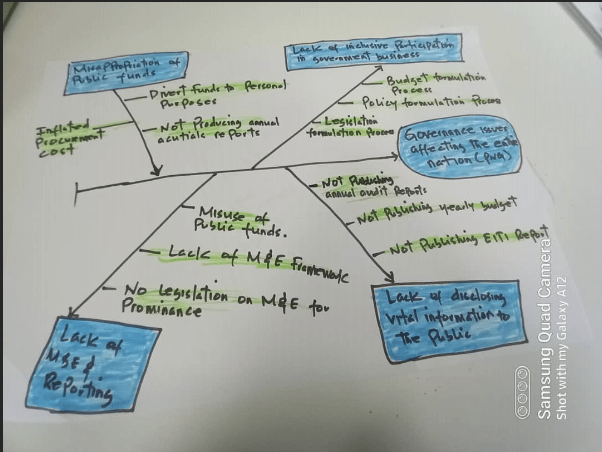 Misappropriation of
Public funds
Lack of inclusive Participation
in government business
Divert Funds to Personal
Purposes
Not Producing annual
acutials reports
Inflated
Procurement
cost
Budget formulation
Process
Policy formulation Process
Legislation
formulation Process
Governance issues
affecting the entire
nation (PNG)
Not Publishing
annual audit Reports
Not Publishing yearly budget
Not Publishing EITI Report
Misuse of
Public funds.
Lack of M&E Framework
No Legislation on M&E for
Prominance
Lack of
M&E &
Reporting
Lack of disclosing
vital information to
the Public
Samsung Quad Camera
Shot with my Galaxy A12